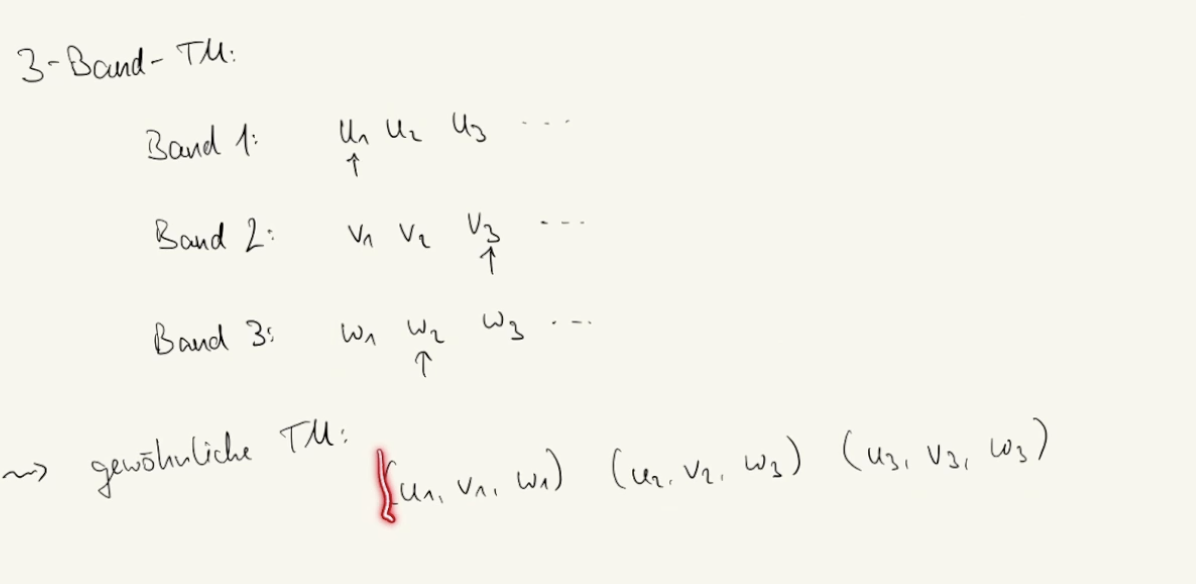 3-Band-TM:
Band 1: u₁ u₂ u₃ ...
↑
Band 2: v₁ v₂ v₃ ...
↑
Band 3: w₁ w₂ w₃ ...
↑
⇝ gewöhnliche TM: (u₁, v₁, w₁) (u₂, v₂, w₃) (u₃, v₃, w₃)